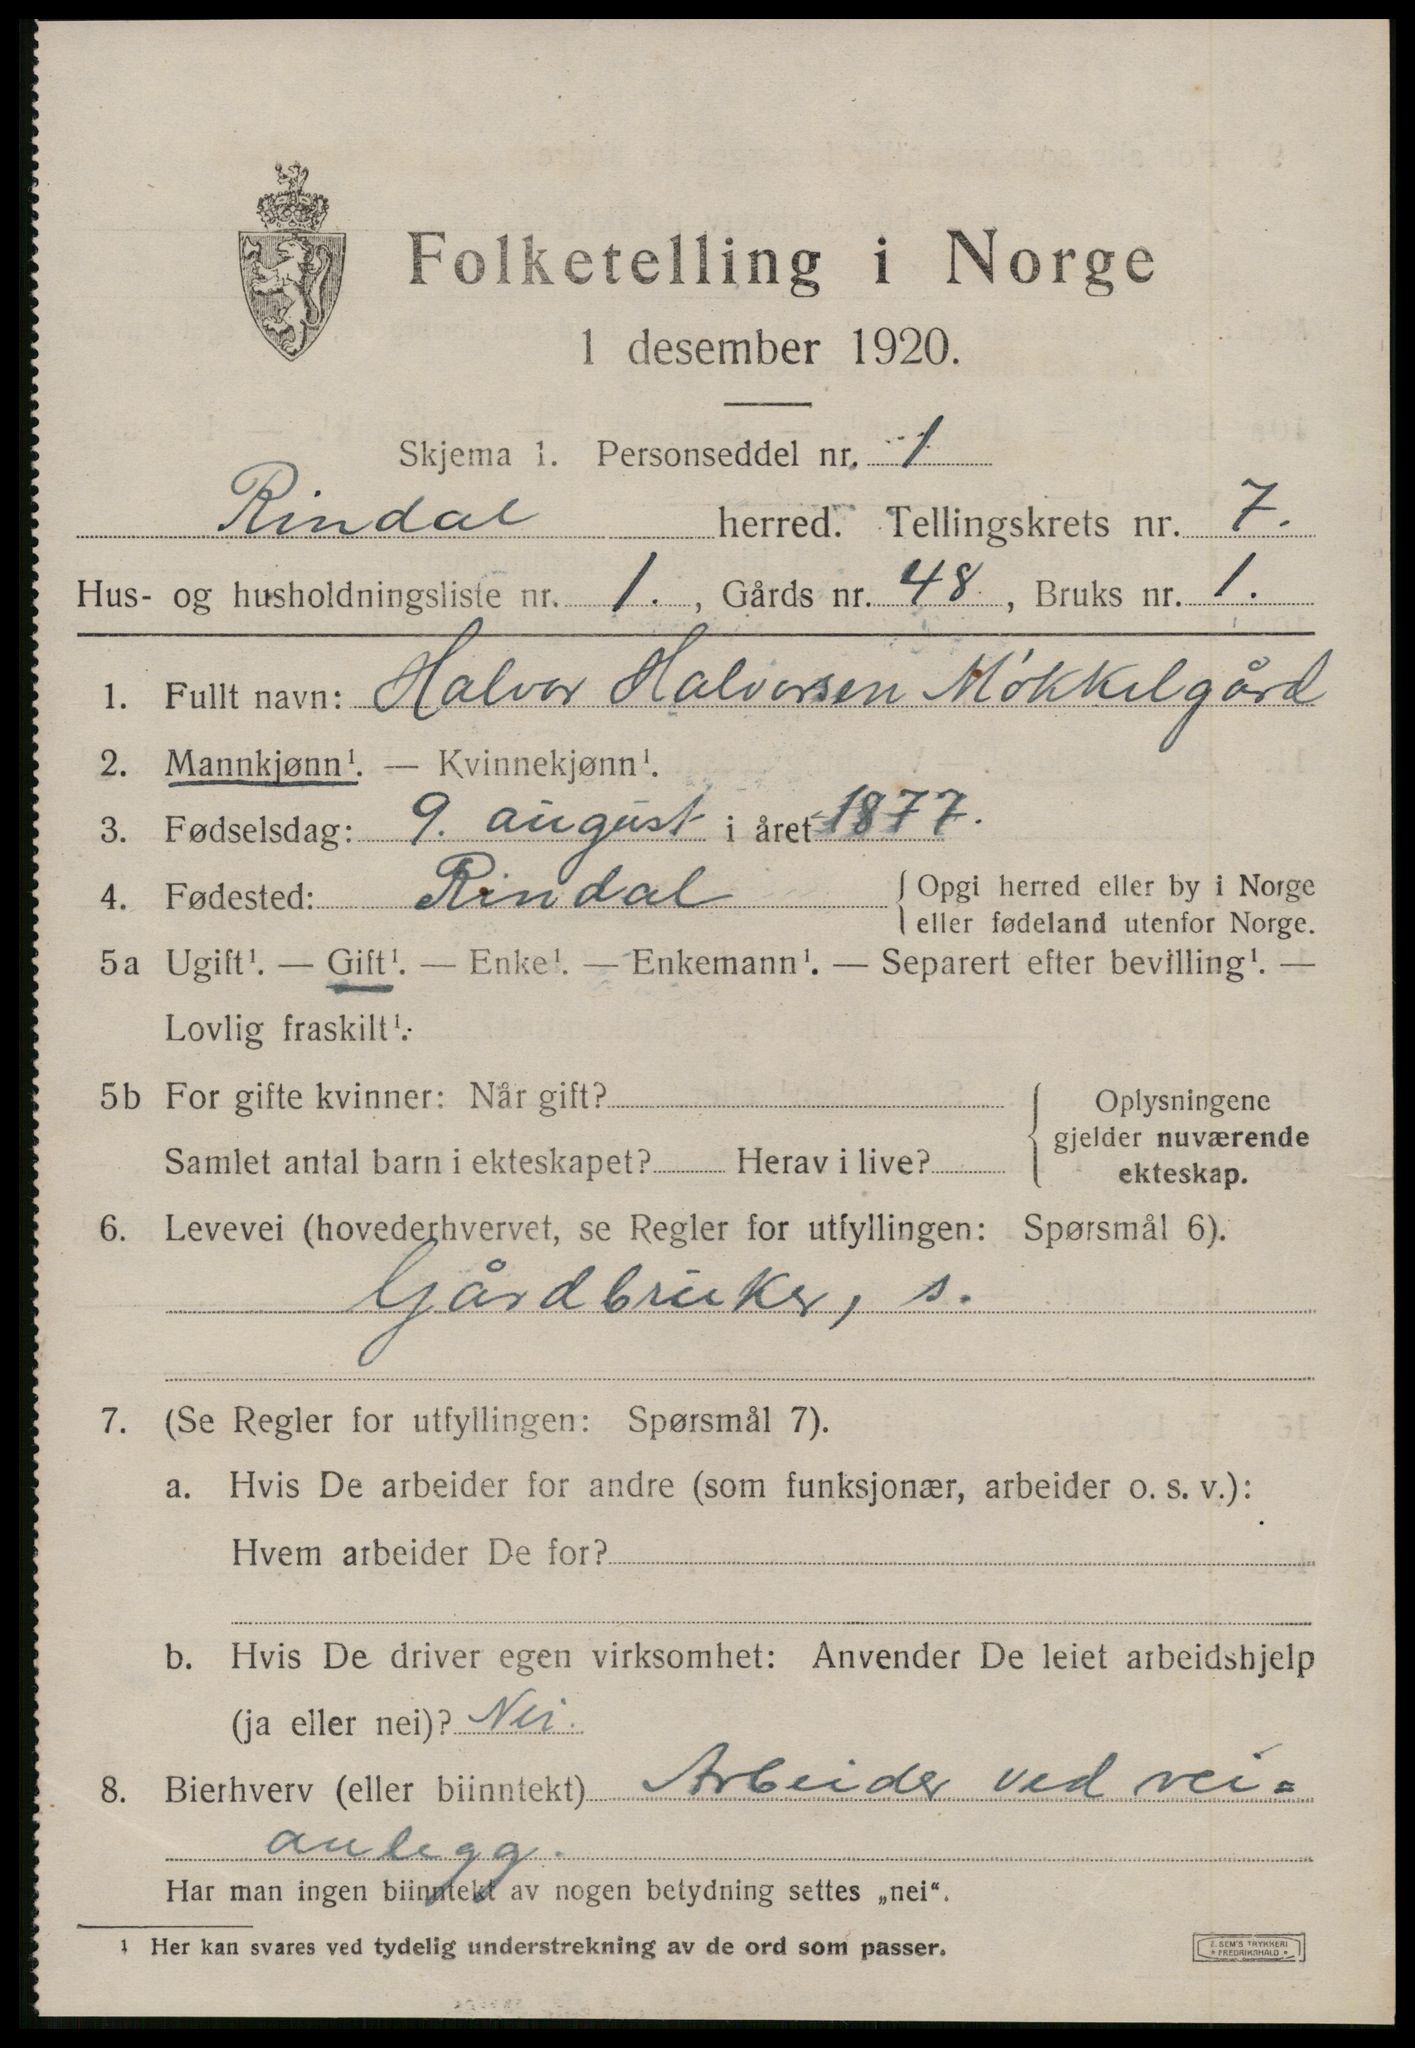 Folketelling i Norge
1 desember 1920.
Skjema 1. Personseddel nr. 1
Rindal herred. Tellingskrets nr. 7.
Hus- og husholdningsliste nr. 1. , Gårds nr. 48 , Bruks nr. 1.
1. Fullt navn: Halvor Halvorsen Møkkelgård
2. Mannkjønn¹. — Kvinnekjønn¹.
3. Fødselsdag: 9. august i året 1877.
4. Fødested: Rindal { Opgi herred eller by i Norge
eller fødeland utenfor Norge.
5a Ugift¹. — Gift¹. — Enke¹. — Enkemann¹. — Separert efter bevilling¹. —
Lovlig fraskilt¹.
5b For gifte kvinner: Når gift?
Samlet antal barn i ekteskapet? Herav i live?
Oplysningene
gjelder nuværende
ekteskap.
6. Levevei (hovederhvervet, se Regler for utfyllingen: Spørsmål 6).
Gårdbruker, s.
7. (Se Regler for utfyllingen: Spørsmål 7).
a. Hvis De arbeider for andre (som funksjonær, arbeider o. s. v.):
Hvem arbeider De for?
b. Hvis De driver egen virksomhet: Anvender De leiet arbeidshjelp
(ja eller nei)? Nei.
8. Bierhverv (eller biinntekt) Arbeider ved vei=
anlegg.
Har man ingen biinntekt av nogen betydning settes „nei“.
¹ Her kan svares ved tydelig understrekning av de ord som passer.
E. SEM'S TRYKKERI
* FREDRIKSHALD *